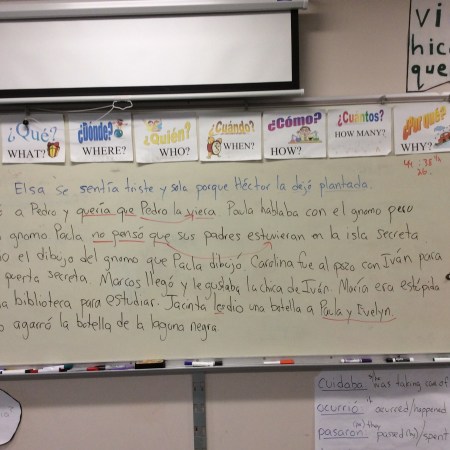 vi
hic
que
¿Qué?
WHAT?
¿Dónde?
WHERE?
¿Quién?
WHO?
¿Cuándo?
WHEN?
¿Cómo?
HOW?
¿Cuántos?
HOW MANY?
¿Por qué?
WHY?
Elsa se sentía triste y sola porque Héctor la dejó plantada.
ó a Pedro y quería que Pedro la viera. Paula hablaba con el gnomo peso
gnomo Paula no pensó que sus padres estuvieran en la isla secreta
o el dibujo del gnomo que Paula dibujó. Carolina fue al pozo con Iván para
puerta secreta. Marcos llegó y le gustaba la chica de Iván. María era estúpida
a biblioteca para estudiar. Jacinta le dio una botella a Paula y Evelyn.
o agarró la botella de la laguna negra.
Cuidaba: was taking care of
ocurrió it ocurred/happened
pasaron: they passed/spent